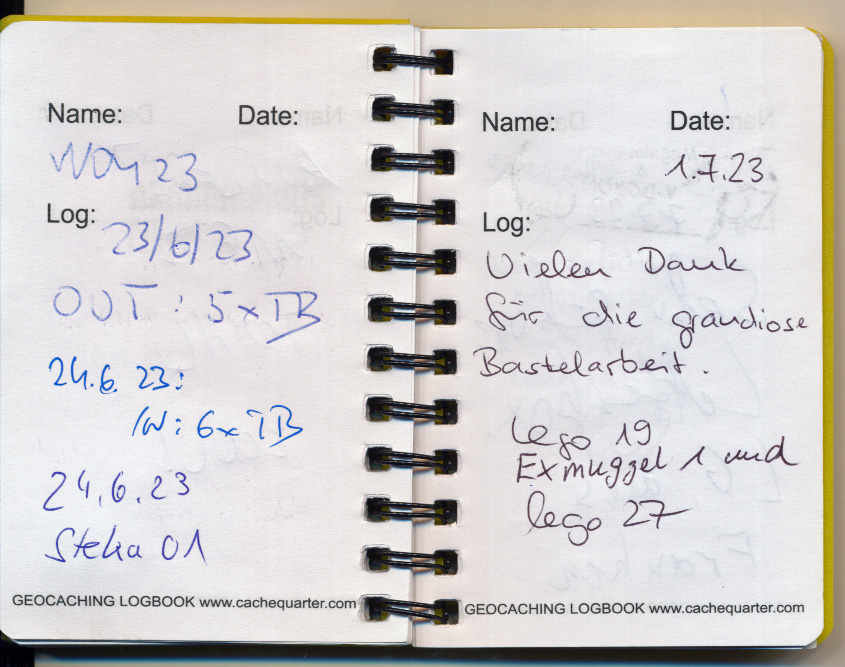 Name: Date:
WOM23
Log:
23/6/23
OUT : 5xTB
24.6. 23:
IN: 6xTB
24.6.23
Steka 01
GEOCACHING LOGBOOK www.cachequarter.com
Name: Date:
1.7.23
Log:
Vielen Dank
für die grandiose
Bastelarbeit.
lego 19
Exmuggel 1 und
lego 27
GEOCACHING LOGBOOK www.cachequarter.com